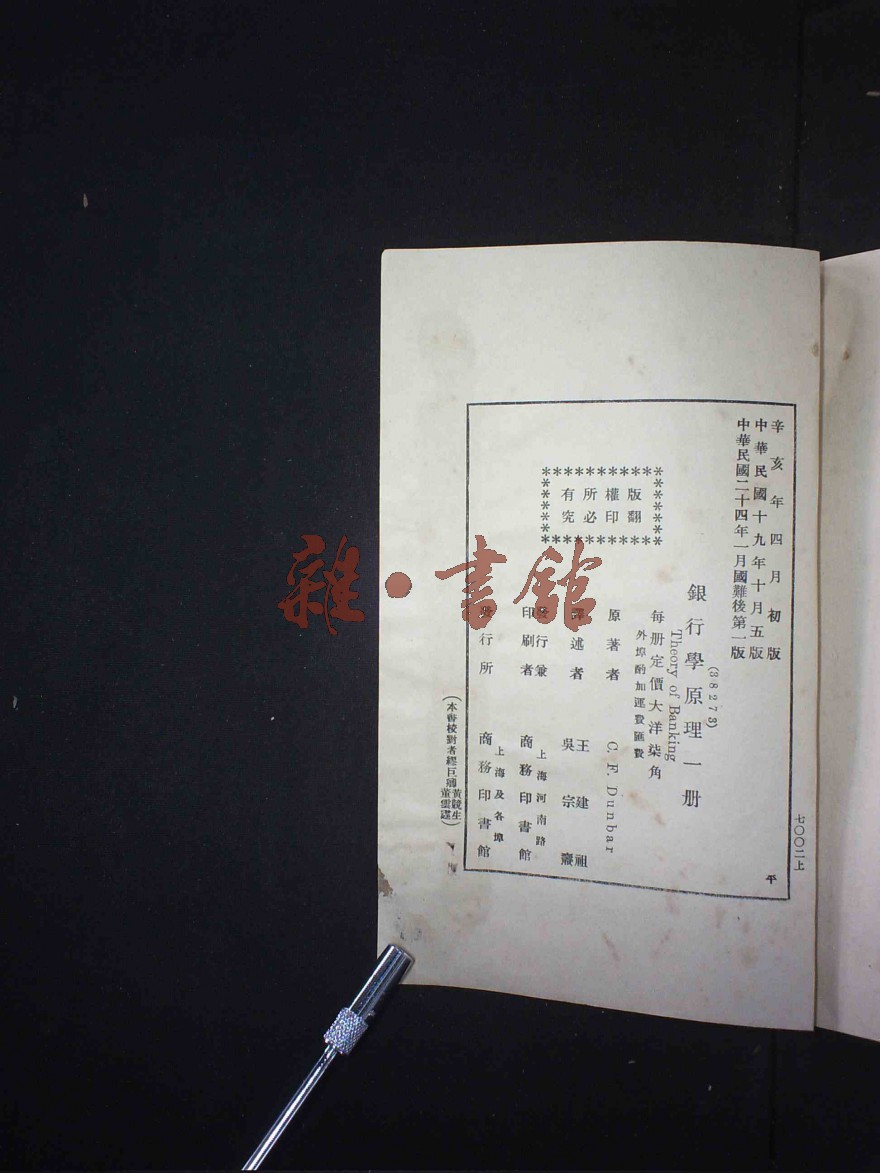 辛亥年四月初版
中華民國十九年十月五版
中華民國二十四年一月國難後第一版
(38273)
銀行學原理一册
Theory of Banking
每册定價大洋柒角
外埠酌加運費匯費
版權所有
翻印必究
原著者 C. F. Dunbar
譯述者 王建祖 吳宗燾
發行兼印刷者 上海河南路 商務印書館
發行所 上海及各埠 商務印書館
(本書校對者 黃競生 董雲謹)
七〇〇二上
平
雜·書館